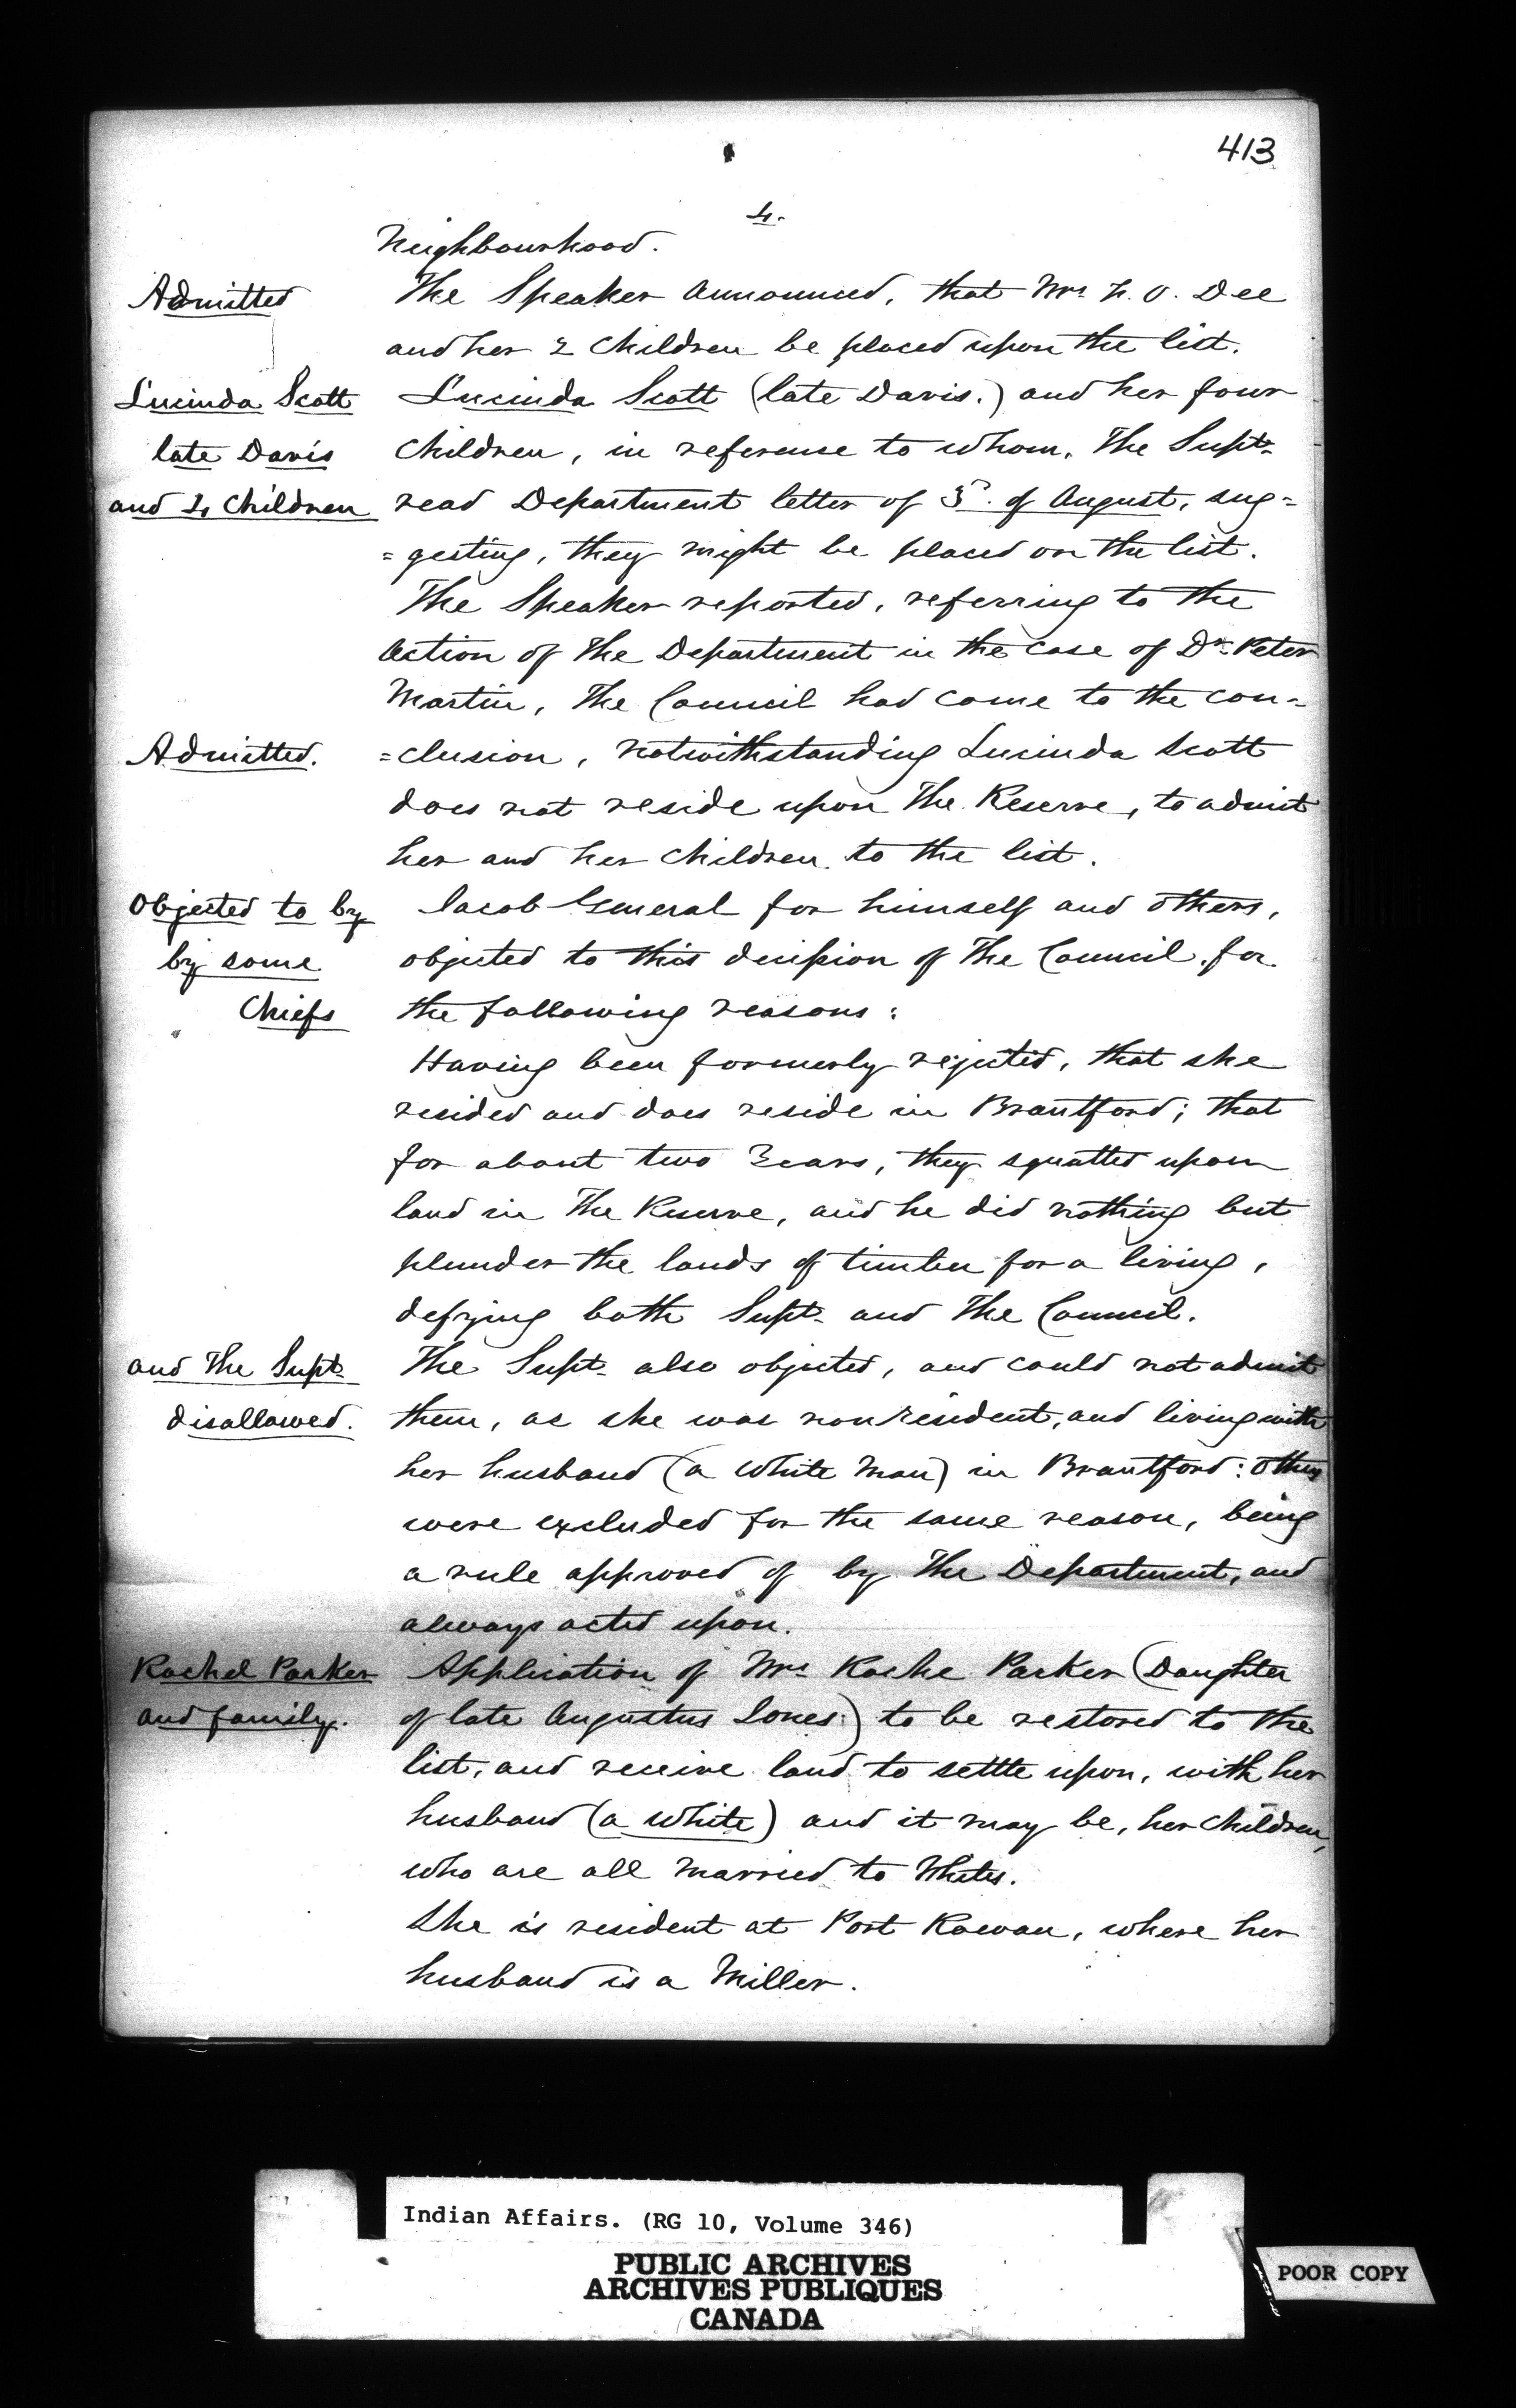 413
4.
Neighbourhood.
Admitted The Speaker announced, that Mrs N. O. Dee
and her 2 Children be placed upon the list.
Lucinda Scott Lucinda Scott (late Davis.) and her four
late Davis Children, in reference to whom, The Supt.
and 4 Children read Department letter of 3d. of August, sug=
=gesting, they might be placed on the list.
The Speaker reported, referring to the
Action of The Department in the case of Dr. Peter
Martin, The Council had come to the con=
Admitted. =clusion, notwithstanding Lucinda Scott
does not reside upon The Reserve, to admit
her and her Children to the list.
Objected to by Jacob General for himself and others,
by some objected to this decision of The Council, for
Chiefs the following reasons:
Having been formerly rejected, that she
resided and does reside in Brantford; that
for about two Years, they squatted upon
land in The Reserve, and he did nothing but
plunder the lands of timber for a living,
defying both Supt. and The Council.
and The Supt. The Supt. also objected, and could not admit
disallowed. them, as she was non resident, and living with
her husband (a White Man) in Brantford: others
were excluded for the same reason, being
a rule approved of by The Department, and
always acted upon.
Rachel Parker Application of Mrs Rache Parker (Daughter
and family. of late Augustus Jones) to be restored to the
list, and receive land to settle upon, with her
husband (a White) and it may be, her Children,
who are all Married to Whites.
She is resident at Port Rowan, where her
husband is a Miller.
Indian Affairs. (RG 10, Volume 346)
PUBLIC ARCHIVES
ARCHIVES PUBLIQUES
CANADA
POOR COPY